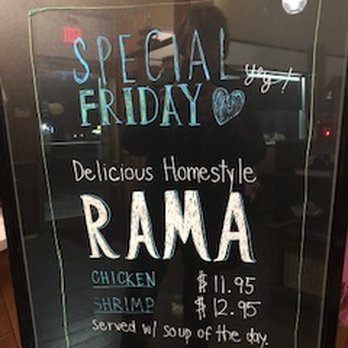 SPECIAL
FRIDAY
Delicious Homestyle
RAMA
CHICKEN $11.95
SHRIMP $12.95
served w/ soup of the day.